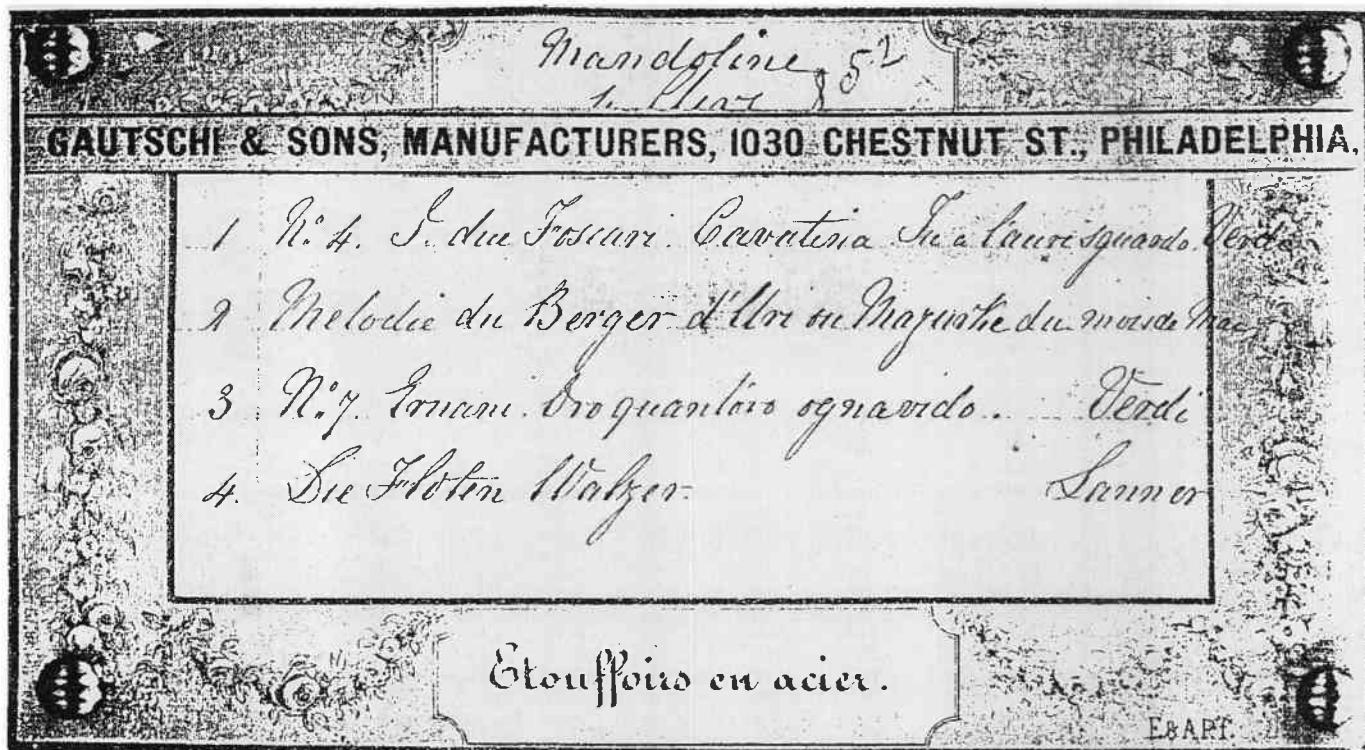 Mandoline
4 852
GAUTSCHI & SONS, MANUFACTURERS, 1030 CHESTNUT ST., PHILADELPHIA,
1 N.º 4. I. due Foscari. Cavatina Tu a lauri sguardo Verdi
2 Melodie du Berger d'Uri ou Mazurke du mois de Mai
3 N.º 7. Ernani. Oro quant'oro ognavido. Verdi
4. Die Floten Walzer Lanner
Etouffoirs en acier.
E&APf.